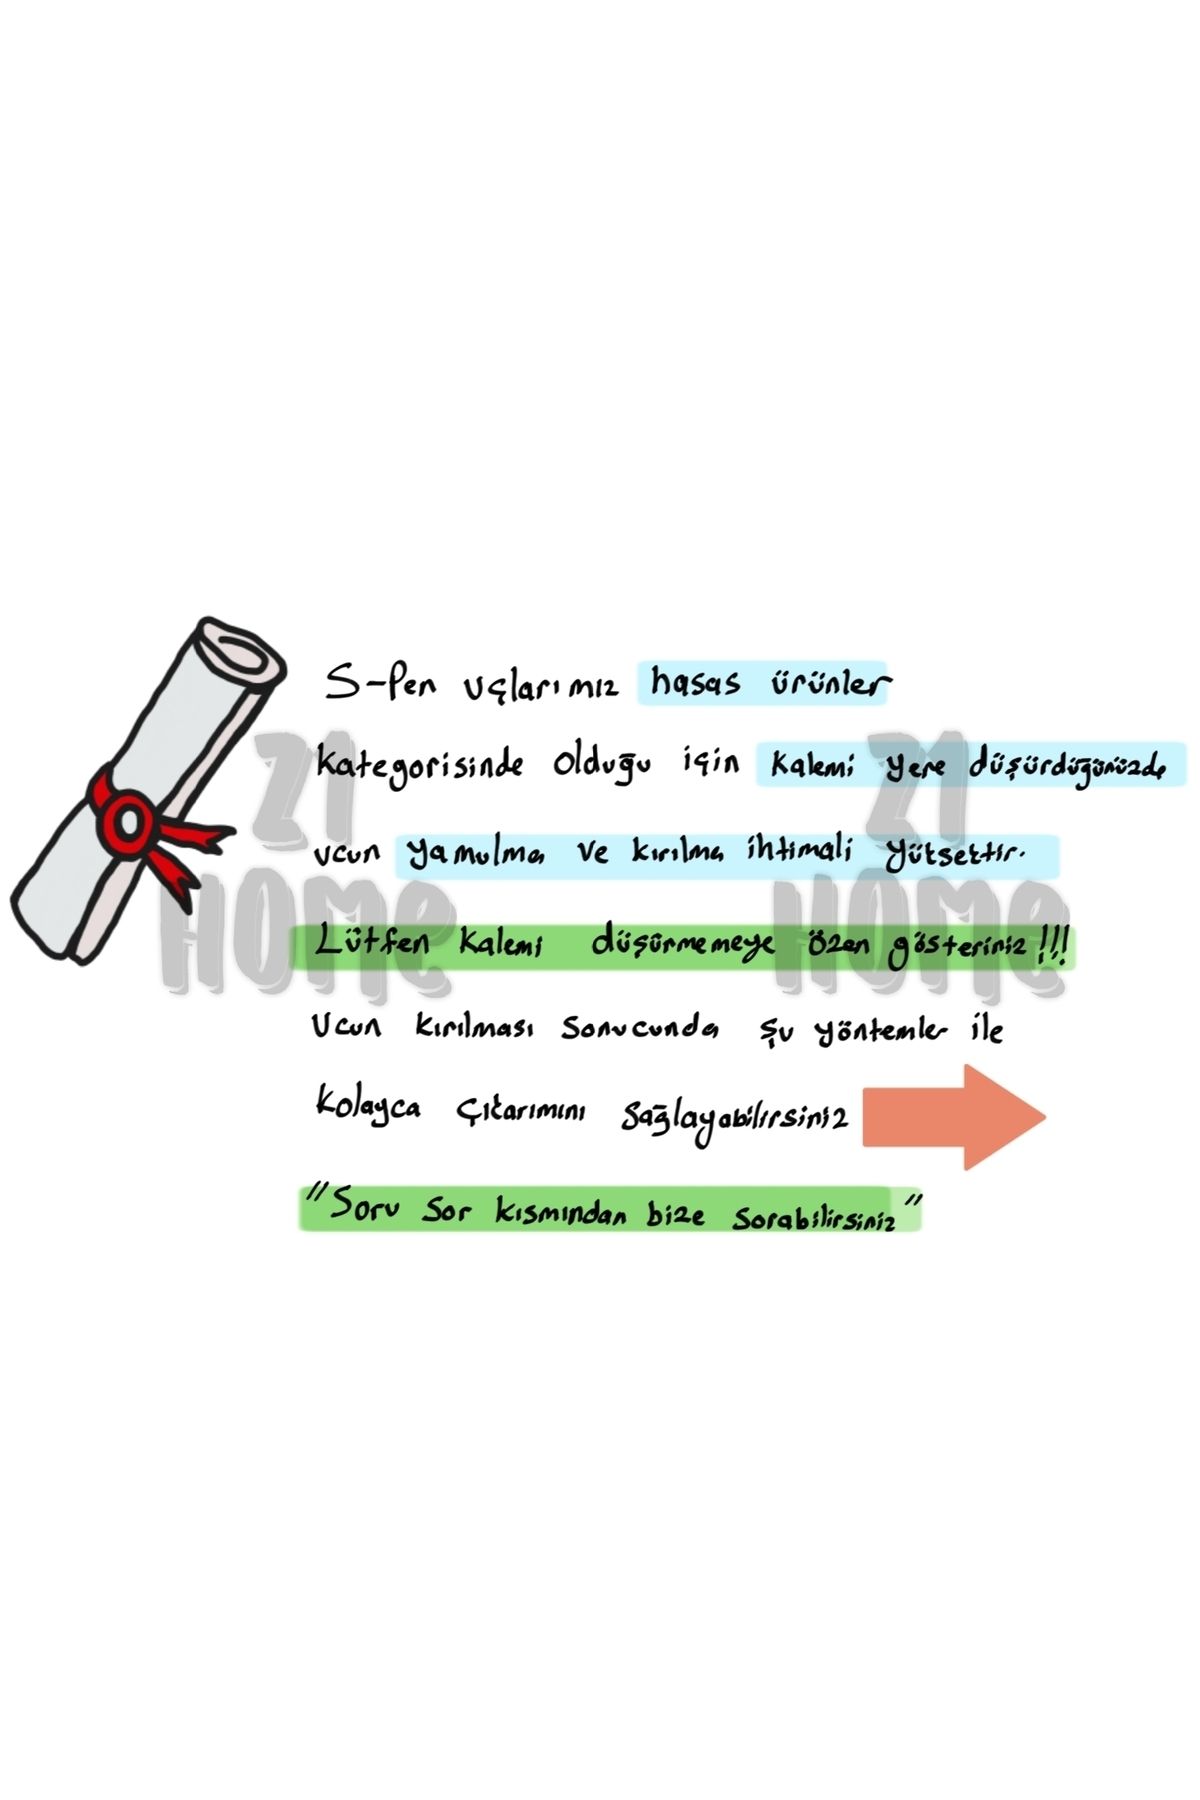 S-Pen uçlarımız hasas ürünler
kategorisinde olduğu için kalemi yere düşürdüğünüzde
ucun yamulma ve kırılma ihtimali yüksektir.
Lütfen kalemi düşürmemeye özen gösteriniz!!!
Ucun kırılması sonucunda şu yöntemler ile
kolayca çıkarımını sağlayabilirsiniz
"Soru sor kısmından bize sorabilirsiniz"
21 21
HOMe HOMe